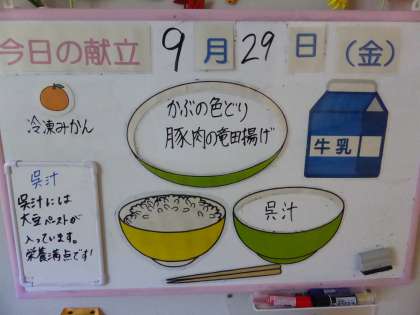 今日の献立 9月29日（金）
冷凍みかん
かぶの色どり
豚肉の竜田揚げ
牛乳
呉汁
呉汁
呉汁には
大豆ペーストが
入っています。
栄養満点です!